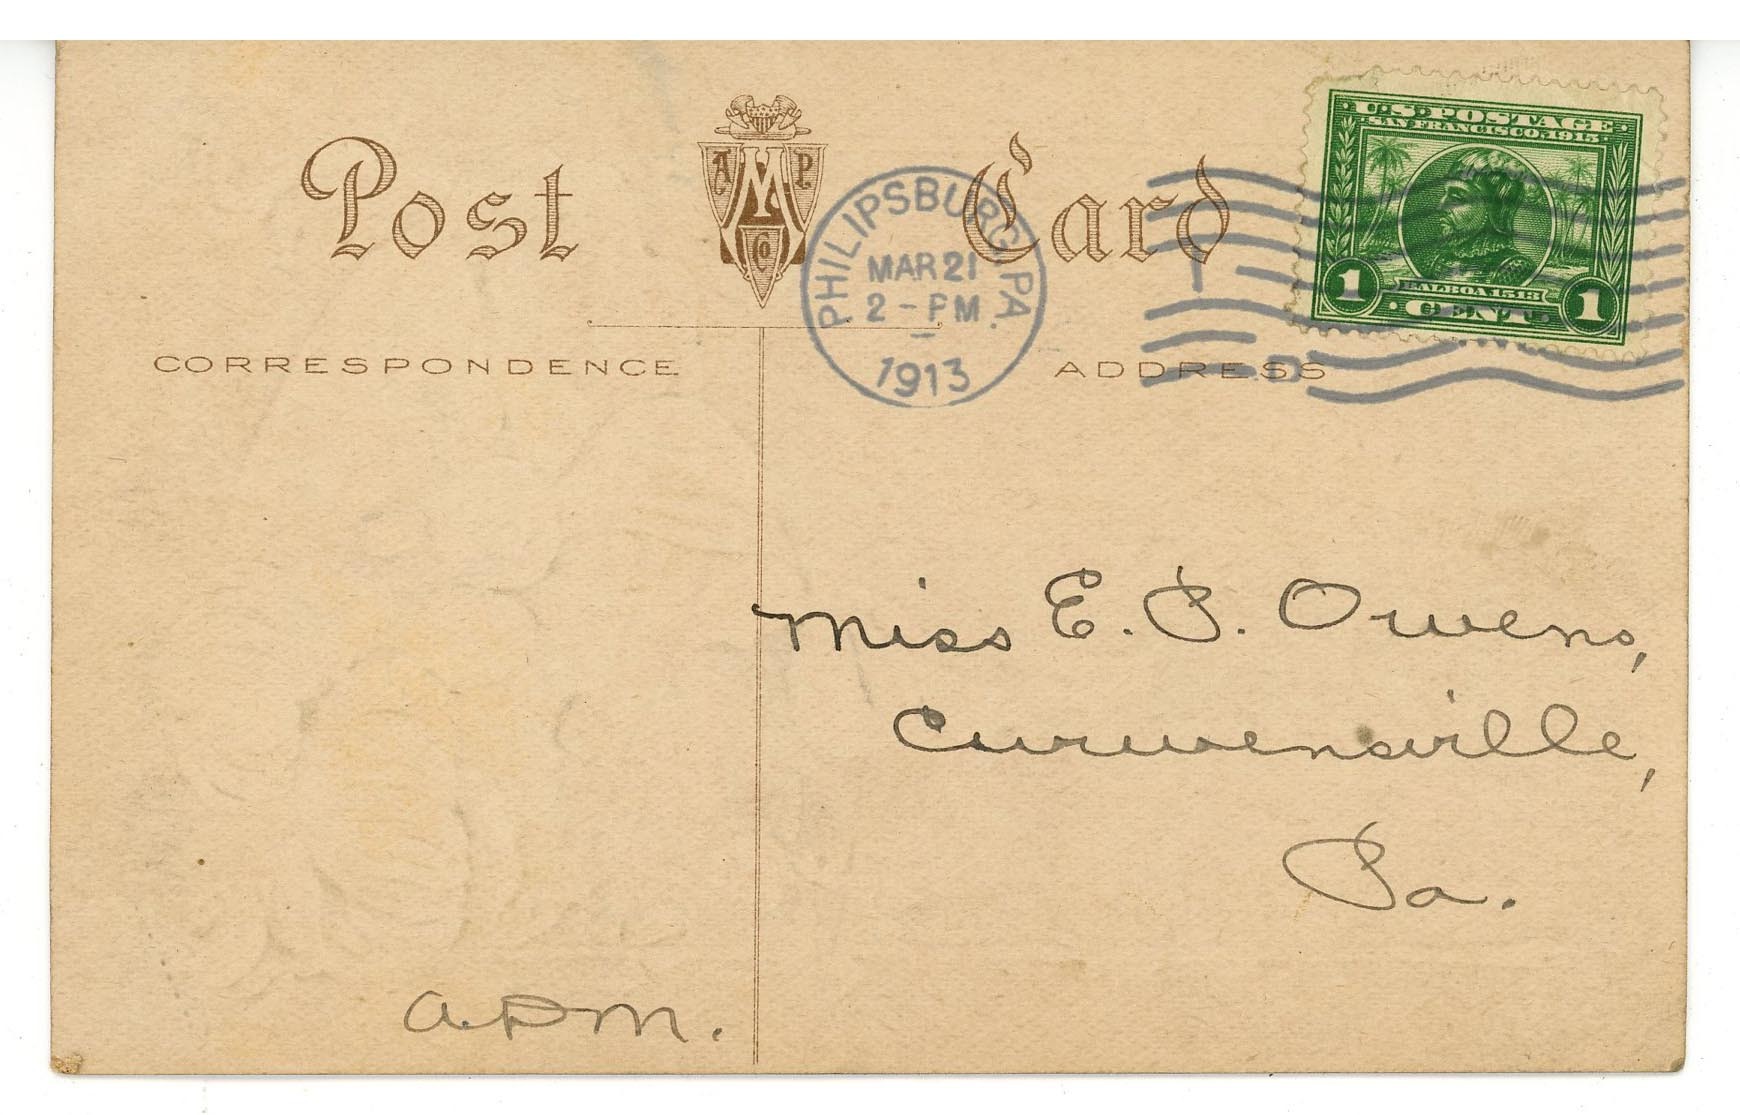 Post Card
A M P Co
PHILIPSBURG, PA.
MAR 21
2 - PM
1913
U.S. POSTAGE
SAN FRANCISCO, 1915
BALBOA 1513
1 CENT 1
CORRESPONDENCE
ADDRESS
Miss E. P. Owens,
Curwensville,
Pa.
A.P.M.